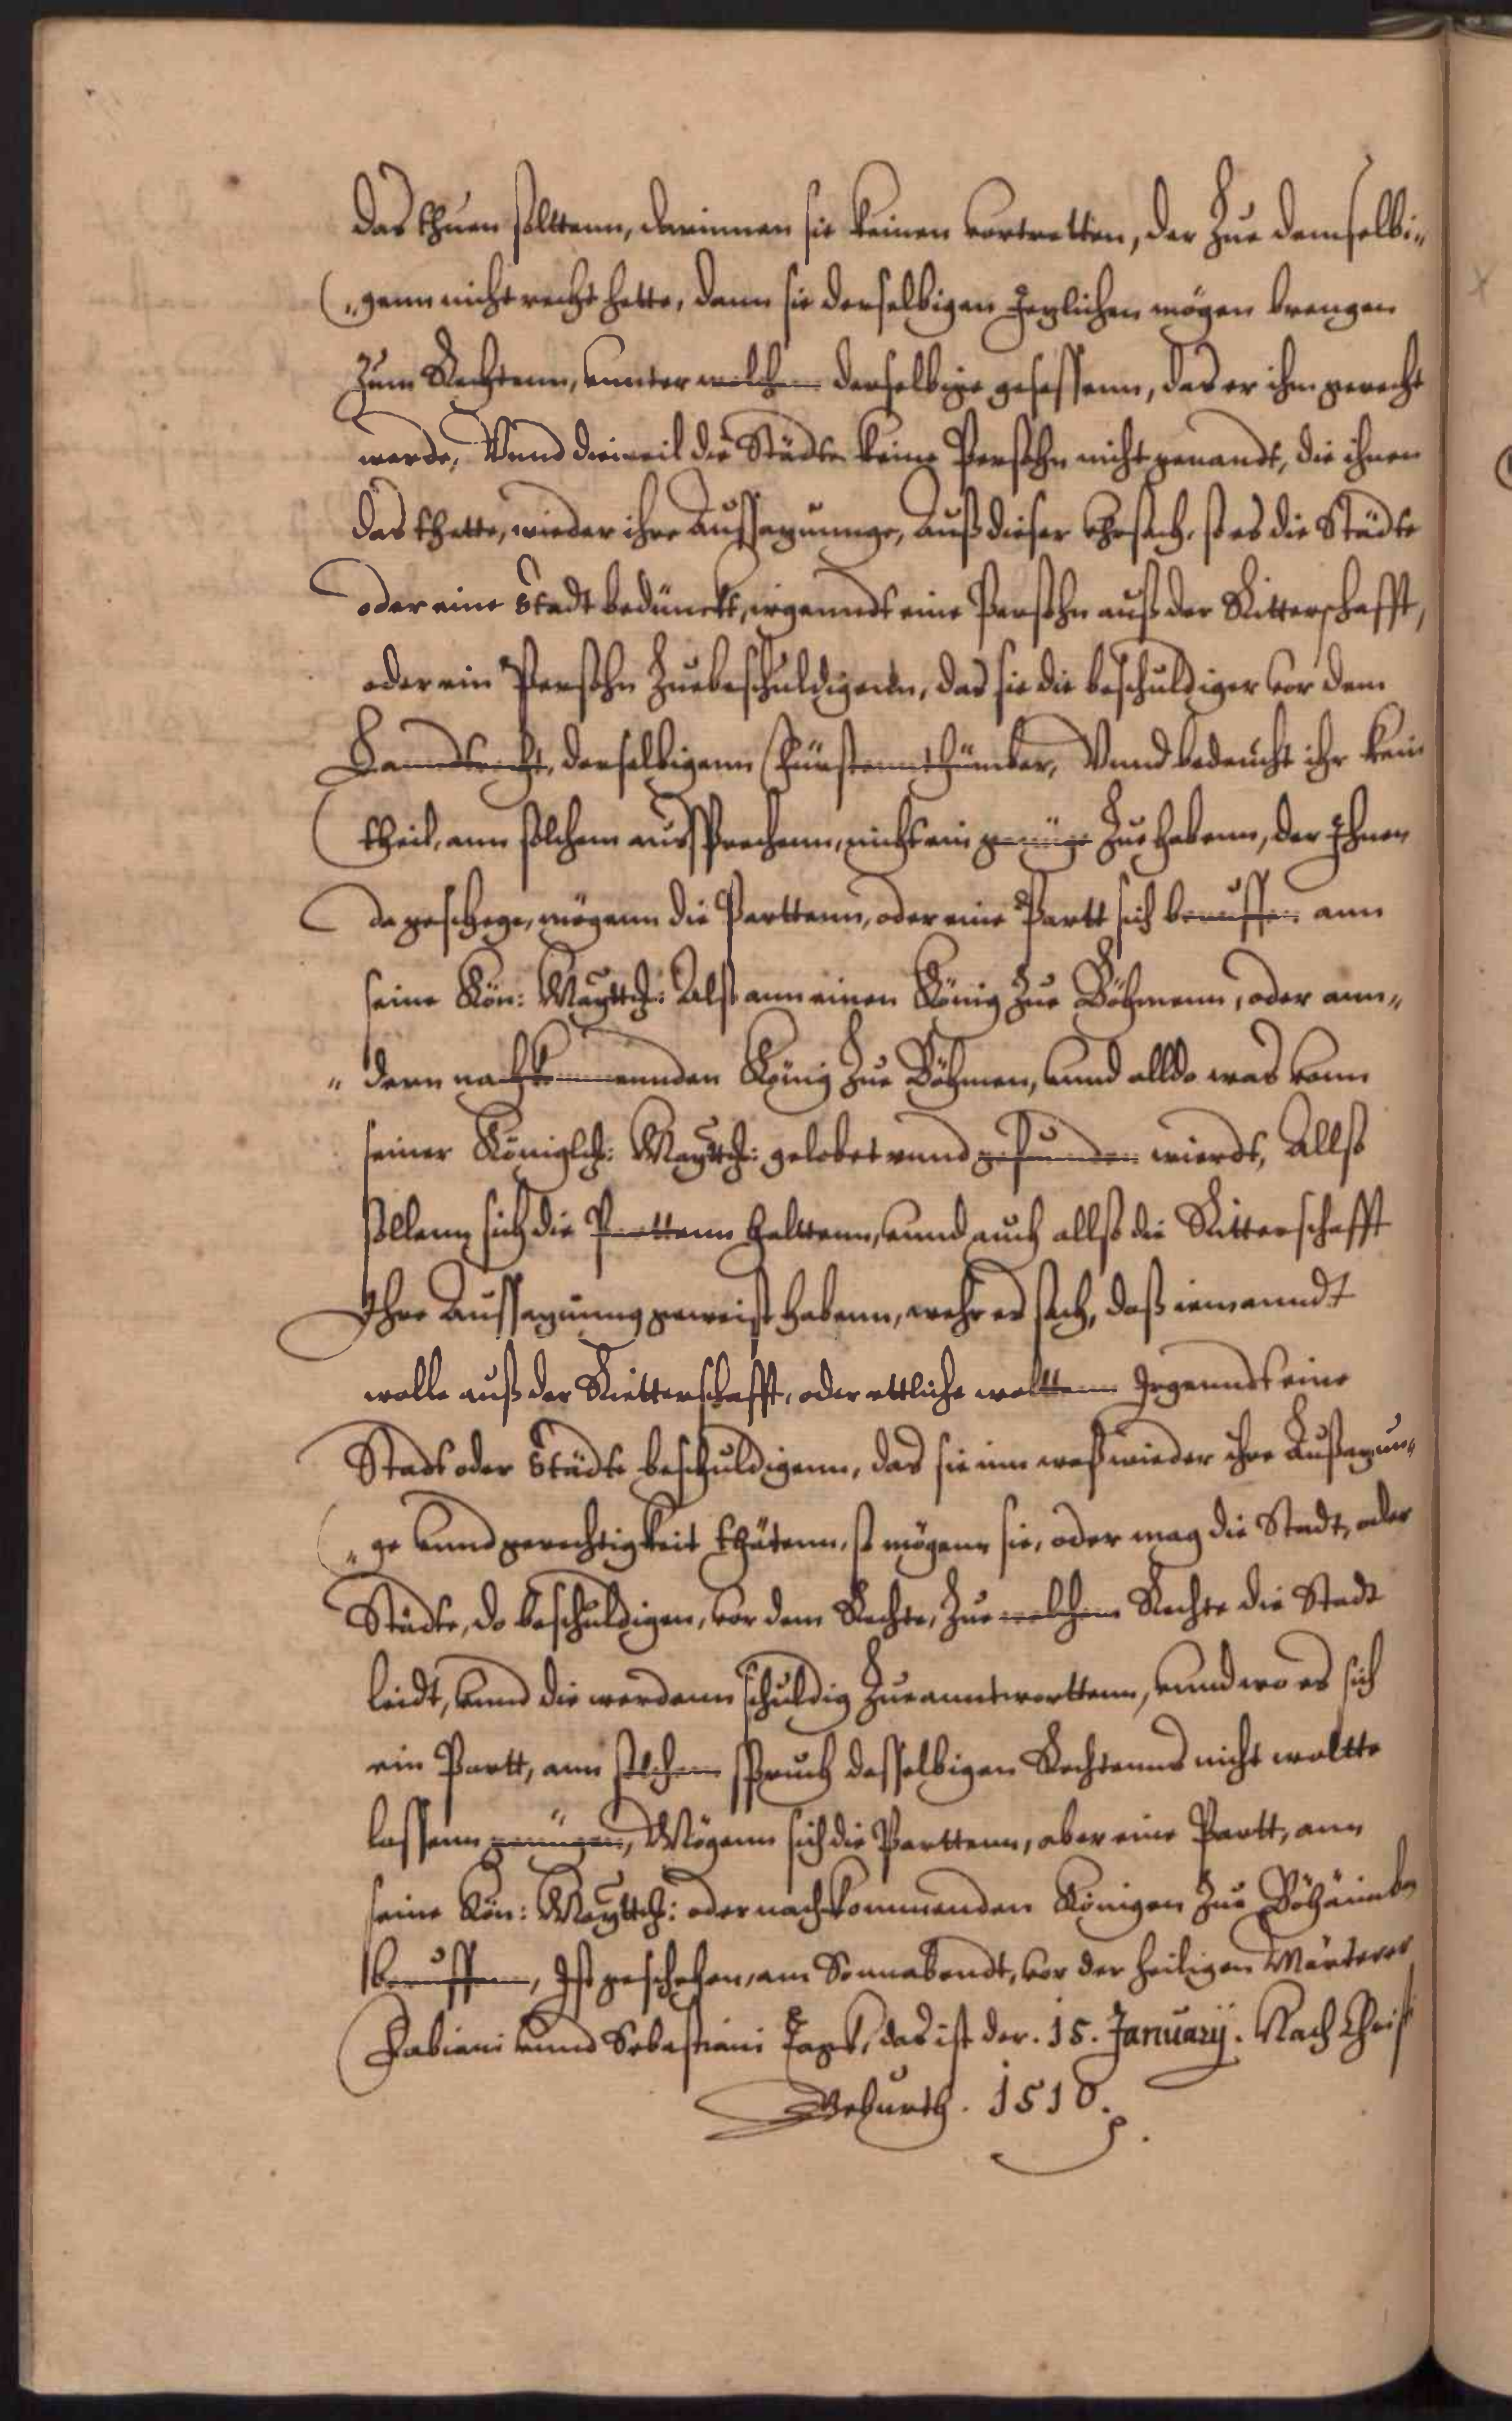 das thuen solttenn, darinnen sie keinen vortretten, der Zue demselbi„
„genn nicht recht hette, dann sie derselbigen Jeglichen mögen brengen
Zum Rechtenn, vunter welchen derselbige gesessenn, das er ihm gerecht
werde, Vnnd dieweil die Städte keine Persohn nicht genandt, die ihnen
das thette, wieder ihre Aussagunnge, Auß dieser Vhrsach, so es die Städte
oder eine Stadt bedünckt, irgenndt eine Persohn auß der Ritterschafft,
oder ein Persohn Zuebeschuldigenn, das sie die beschuldigen vor dem
Lanndtrecht, derselbigenn Fürstennthümber, Vnnd bedeucht ihr kein
theil, ann solchem aussprechenn, nicht ein genüge Zue habenn, der Ihnen
da geschege, mögenn die Parttenn, oder eine Partt sich beruffen ann
seine Kön: Mayttch: Alß ann einen König Zue Böhmenn, oder ann„
„dern nachkommennden König Zue Böhmen, vnnd allda was vonn
seiner Königlch: Mayttch: gelobet vnnd gefunden wierdt, Allß
sollenn sich die Parttenn halttenn, vnnd auch allß die Ritterschafft
Ihre Aussagunng geweist habenn, wehr es sach, daß iemanndt
wolle auß der Rietterschafft, oder ettliche woltten Irgenndt eine
Stadt oder Städte beschuldigenn, das sie inn waß wieder ihre Außagun„
„ge vnnd gerechtigkeit thätenn, so mögenn sie, oder mag die Stadt, oder
Städte, do beschuldigen, vor dem Rechte, Zue welchem Rechte die Stadt
leidt, vnnd die werdenn schuldig Zueanntworttenn, vnnd wo es sich
ein Partt, ann solchem spruch desselbigen Rechtenns nicht woltte
lassenn genügen, Mögenn sich die Parttenn, aber eine Partt, ann
seine Kön: Mayttch: oder nachkommenden Königen Zue Böhaimben
beruffenn, Ist geschehen, am Sonnabendt, vor der heiligen Märterer
Fabiani vnnd Sebastiani Tage, das ist der. 15. January. Nach Christi
Geburth. 1510.